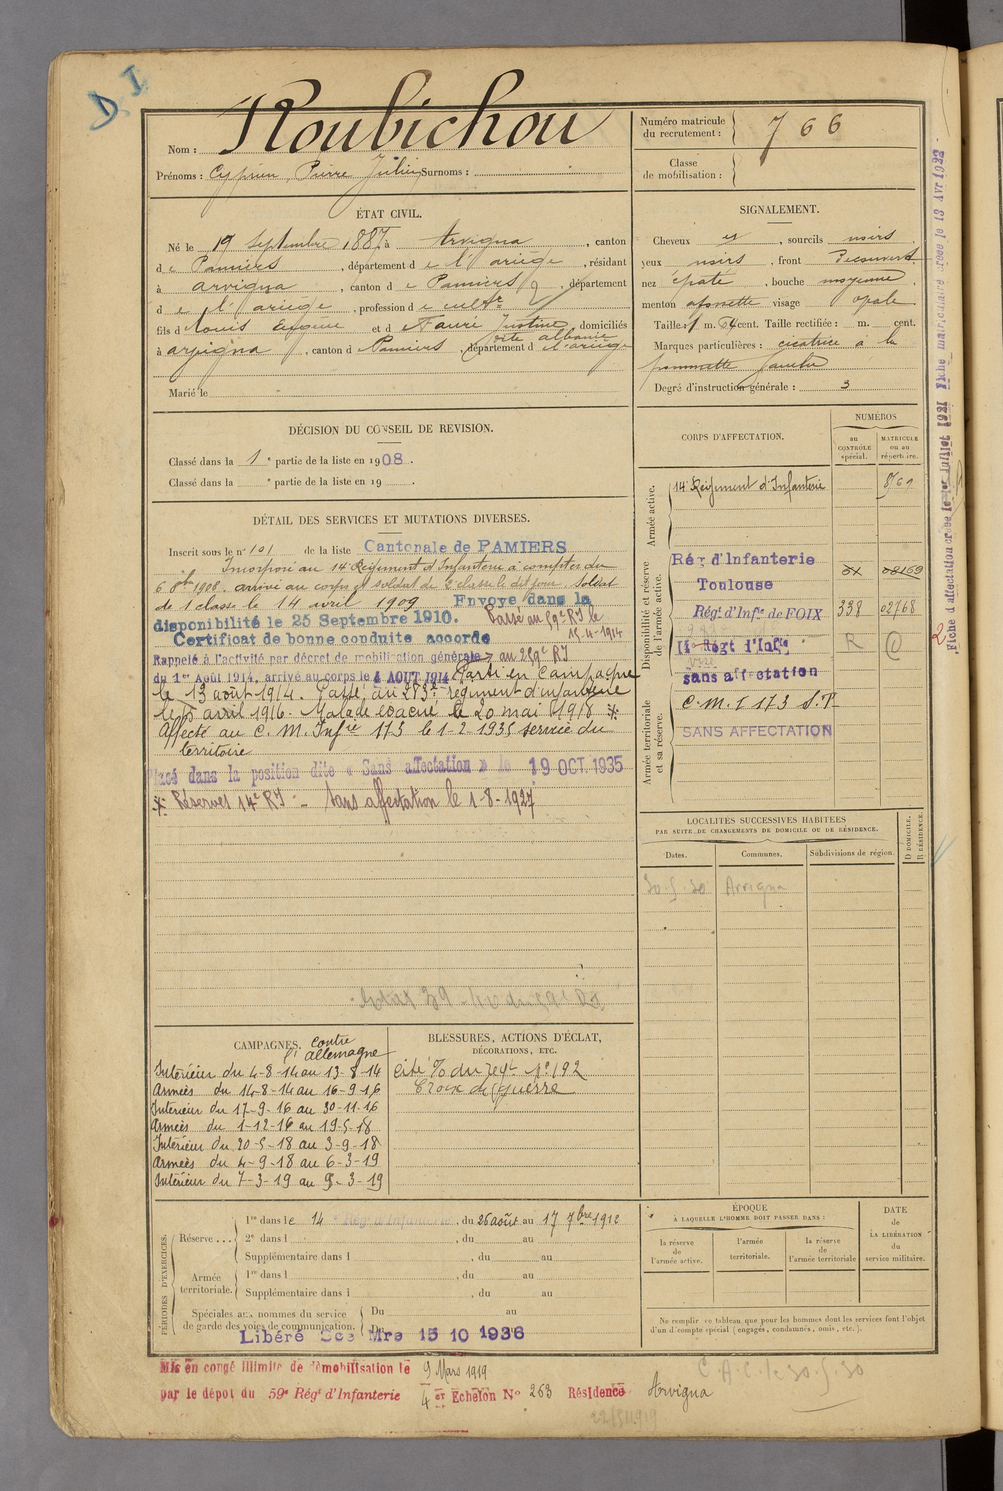 D. I.
Nom : Roubichou
Prénoms : Cyprien, Pierre Julien Surnoms :
Numéro matricule du recrutement : 766
Classe de mobilisation :
ÉTAT CIVIL.
Né le 19 Septembre 1887, à Arvigna, canton
de Pamiers, département de l'ariège, résidant
à arvigna, canton de Pamiers, département
de l'ariège, profession de cultr
fils de Louis Eugène et de Faure Justine, domiciliés
dite albanie
à arvigna, canton d Pamiers, département de l'ariège
Marié le
SIGNALEMENT.
Cheveux et, sourcils noirs
yeux noirs, front Découvert
nez épaté, bouche moyenne,
menton à fossette visage opale
Taille : 1 m. 64 cent. Taille rectifiée : m. cent.
Marques particulières : cicatrice à la
pommette gauche
Degré d'instruction générale : 3
DÉCISION DU CONSEIL DE REVISION.
Classé dans la 1e partie de la liste en 1908.
Classé dans la e partie de la liste en 19 .
DÉTAIL DES SERVICES ET MUTATIONS DIVERSES.
Inscrit sous le n° 101 de la liste Cantonale de PAMIERS
Incorporé au 14e Régiment d'Infanterie à compter du
6 8bre 1908. arrivé au corps et soldat de 2e classe le dit jour. Soldat
de 1 classe le 14 avril 1909 Envoyé dans la
disponibilité le 25 Septembre 1910. Passé au 59e RI le
15-4-1914
Certificat de bonne conduite accordé
Rappelé à l'activité par décret de mobilisation générale au 259e RI
du 1er Août 1914, arrivé au corps le 4 AOUT 1914 Parti en Campagne
le 13 août 1914. Passé au 283e régiment d'infanterie
le 15 avril 1916. Malade évacué le 20 mai 1918 *
Affecté au C. M. Infie 173 le 1-2-1935 service du
territoire
Placé dans la position dite « Sans affectation » le 19 OCT. 1935
* Réserves 14e RI - Sans affectation le 1-8-1927
CORPS D'AFFECTATION.
NUMÉROS
au CONTRÔLE spécial.
MATRICULE ou au répertoire.
Armée active.
14e Régiment d'Infanterie 8769
Disponibilité et réserve de l'armée active.
Rég d'Infanterie
Toulouse
Régt d'Infie de FOIX 338 02768
Régt d'Infie R
sans affectation
Armée territoriale et sa réserve.
C. M. I 173 S.T
SANS AFFECTATION
LOCALITÉS SUCCESSIVES HABITÉES
PAR SUITE DE CHANGEMENTS DE DOMICILE OU DE RÉSIDENCE.
Dates. Communes. Subdivisions de région. D DOMICILE. R RÉSIDENCE.
30-5-30 Arvigna
CAMPAGNES. Contre
l'allemagne
Intérieur du 4-8-14 au 13-8-14
Armées du 14-8-14 au 16-9-16
Intérieur du 17-9-16 au 30-11-16
Armées du 1-12-16 au 19-5-18
Intérieur du 20-5-18 au 3-9-18
Armées du 4-9-18 au 6-3-19
Intérieur du 7-3-19 au 9-3-19
BLESSURES, ACTIONS D'ÉCLAT,
DÉCORATIONS, ETC.
Cité % du regt n° 192
Croix de guerre
PÉRIODES D'EXERCICES.
Réserve ...
1re dans le 14e Rég d'Infanterie, du 26 août au 17 7bre 1912
2e dans l , du au
Supplémentaire dans l , du au
Armée territoriale.
1re dans l , du au
Supplémentaire dans l , du au
Spéciales aux hommes du service
de garde des voies de communication.
Du au
Du
Libéré Sce Mre 15 10 1936
ÉPOQUE
À LAQUELLE L'HOMME DOIT PASSER DANS :
la réserve de l'armée active.
l'armée territoriale.
la réserve de l'armée territoriale
DATE de LA LIBÉRATION du service militaire.
Ne remplir ce tableau que pour les hommes dont les services font l'objet
d'un compte spécial (engagés, condamnés, omis, etc.).
Mis en congé illimité de démobilisation le 9 Mars 1919
par le dépôt du 59e Régt d'Infanterie 4e Echelon N° 263 Résidence Arvigna
C.A.C. le 30-5-30